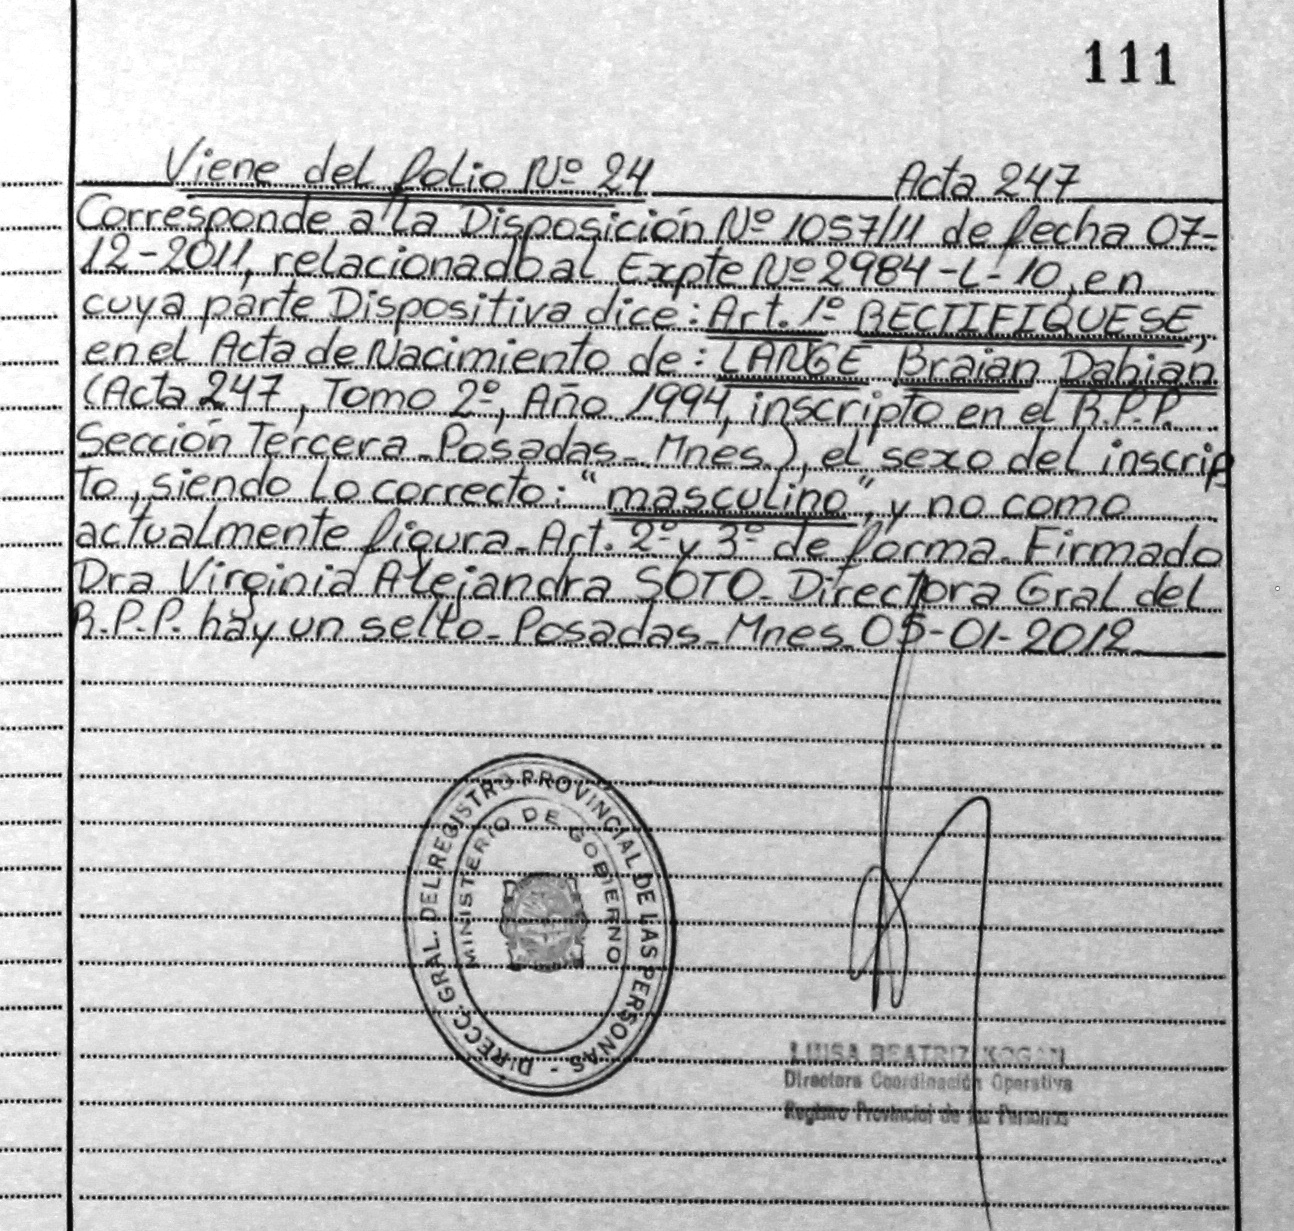 111
Viene del folio Nº 24 Acta 247
Corresponde a la Disposición Nº 1057/11 de fecha 07-
12-2011, relacionado al Expte Nº 2984-L-10, en
cuya parte Dispositiva dice: Art. 1º RECTIFIQUESE,
en el Acta de Nacimiento de: LANGE Braian Dabian
(Acta 247, Tomo 2º, Año 1994, inscripto en el R.P.P.
Sección Tercera-Posadas-Mnes.), el sexo del inscrip
to, siendo lo correcto: "masculino", y no como
actualmente figura. Art. 2º y 3º de forma. Firmado
Dra Virginia Alejandra SOTO. Directora Gral del
R.P.P. hay un sello-Posadas-Mnes. 05-01-2012
DIRECC. GRAL. DEL REGISTRO PROVINCIAL DE LAS PERSONAS -
MINISTERIO DE GOBIERNO
LUISA BEATRIZ KOGAN
Directora Coordinación Operativa
Registro Provincial de las Personas